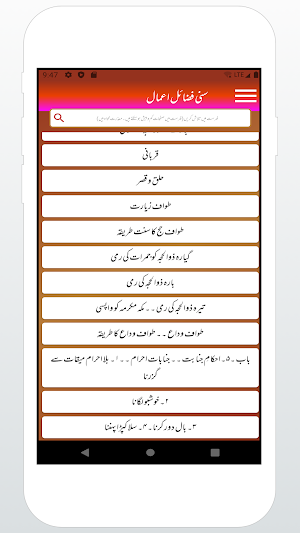 9:47
LTE
سنی فضائل اعمال
قربانی
حلق و قصر
طواف زیارت
طواف حج کا سنت طریقہ
گیارہ ذوالحجہ کو جمرات کی رمی
بارہ ذوالحجہ کی رمی
تیرہ ذوالحجہ کی رمی ۔۔ مکہ مکرمہ کو واپسی
طواف وداع ۔۔ طواف وداع کا طریقہ
باب ۔۵۔ احکام جنابت ۔۔ جنابات احرام ۔۔ ۱۔ بلا احرام میقات سے
گزرنا
۲۔ خوشبو لگانا
۳۔ بال دور کرنا ۔ ۴۔ سلا کپڑا پہننا